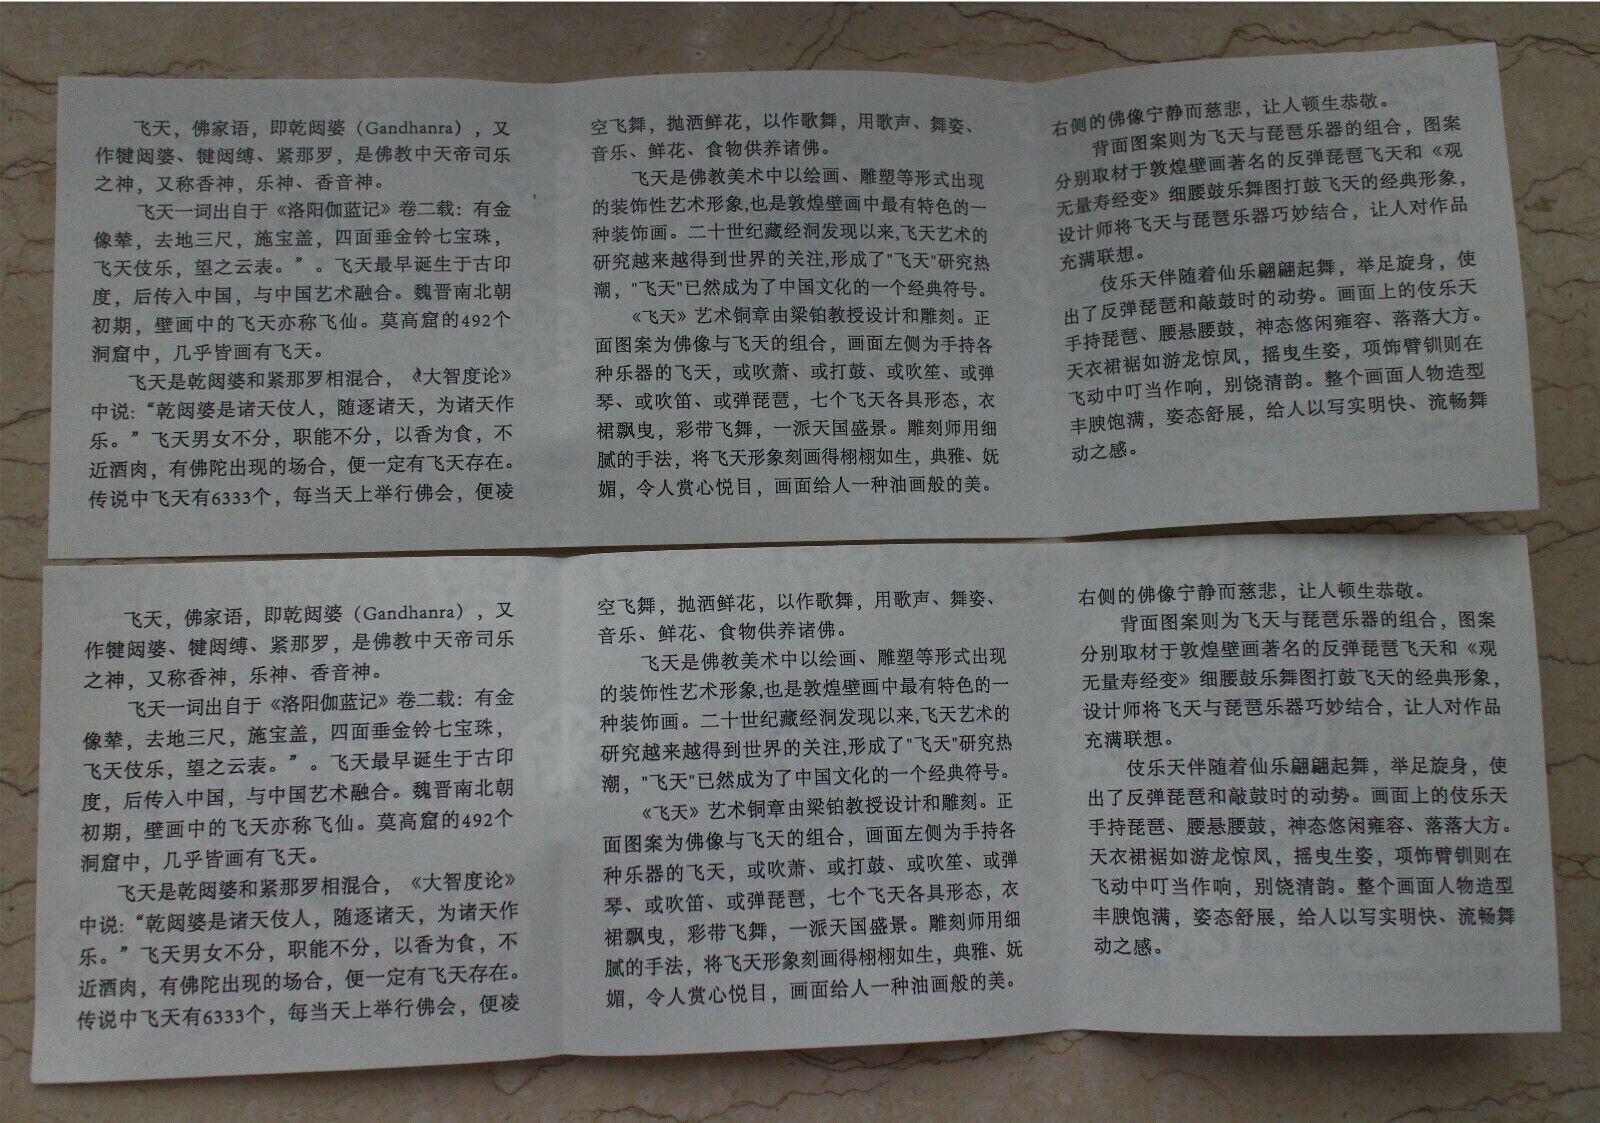 飞天，佛家语，即乾闼婆（Gandhanra），又
作犍闼婆、犍闼缚、紧那罗，是佛教中天帝司乐
之神，又称香神，乐神、香音神。
飞天一词出自于《洛阳伽蓝记》卷二载：有金
像辇，去地三尺，施宝盖，四面垂金铃七宝珠，
飞天伎乐，望之云表。”。飞天最早诞生于古印
度，后传入中国，与中国艺术融合。魏晋南北朝
初期，壁画中的飞天亦称飞仙。莫高窟的492个
洞窟中，几乎皆画有飞天。
飞天是乾闼婆和紧那罗相混合，《大智度论》
中说：“乾闼婆是诸天伎人，随逐诸天，为诸天作
乐。”飞天男女不分，职能不分，以香为食，不
近酒肉，有佛陀出现的场合，便一定有飞天存在。
传说中飞天有6333个，每当天上举行佛会，便凌
空飞舞，抛洒鲜花，以作歌舞，用歌声、舞姿、
音乐、鲜花、食物供养诸佛。
飞天是佛教美术中以绘画、雕塑等形式出现
的装饰性艺术形象,也是敦煌壁画中最有特色的一
种装饰画。二十世纪藏经洞发现以来,飞天艺术的
研究越来越得到世界的关注,形成了"飞天"研究热
潮，"飞天"已然成为了中国文化的一个经典符号。
《飞天》艺术铜章由梁铂教授设计和雕刻。正
面图案为佛像与飞天的组合，画面左侧为手持各
种乐器的飞天，或吹萧、或打鼓、或吹笙、或弹
琴、或吹笛、或弹琵琶，七个飞天各具形态，衣
裙飘曳，彩带飞舞，一派天国盛景。雕刻师用细
腻的手法，将飞天形象刻画得栩栩如生，典雅、妩
媚，令人赏心悦目，画面给人一种油画般的美。
右侧的佛像宁静而慈悲，让人顿生恭敬。
背面图案则为飞天与琵琶乐器的组合，图案
分别取材于敦煌壁画著名的反弹琵琶飞天和《观
无量寿经变》细腰鼓乐舞图打鼓飞天的经典形象，
设计师将飞天与琵琶乐器巧妙结合，让人对作品
充满联想。
伎乐天伴随着仙乐翩翩起舞，举足旋身，使
出了反弹琵琶和敲鼓时的动势。画面上的伎乐天
手持琵琶、腰悬腰鼓，神态悠闲雍容、落落大方。
天衣裙裾如游龙惊凤，摇曳生姿，项饰臂钏则在
飞动中叮当作响，别饶清韵。整个画面人物造型
丰腴饱满，姿态舒展，给人以写实明快、流畅舞
动之感。
飞天，佛家语，即乾闼婆（Gandhanra），又
作犍闼婆、犍闼缚、紧那罗，是佛教中天帝司乐
之神，又称香神，乐神、香音神。
飞天一词出自于《洛阳伽蓝记》卷二载：有金
像辇，去地三尺，施宝盖，四面垂金铃七宝珠，
飞天伎乐，望之云表。”。飞天最早诞生于古印
度，后传入中国，与中国艺术融合。魏晋南北朝
初期，壁画中的飞天亦称飞仙。莫高窟的492个
洞窟中，几乎皆画有飞天。
飞天是乾闼婆和紧那罗相混合，《大智度论》
中说：“乾闼婆是诸天伎人，随逐诸天，为诸天作
乐。”飞天男女不分，职能不分，以香为食，不
近酒肉，有佛陀出现的场合，便一定有飞天存在。
传说中飞天有6333个，每当天上举行佛会，便凌
空飞舞，抛洒鲜花，以作歌舞，用歌声、舞姿、
音乐、鲜花、食物供养诸佛。
飞天是佛教美术中以绘画、雕塑等形式出现
的装饰性艺术形象,也是敦煌壁画中最有特色的一
种装饰画。二十世纪藏经洞发现以来,飞天艺术的
研究越来越得到世界的关注,形成了"飞天"研究热
潮，"飞天"已然成为了中国文化的一个经典符号。
《飞天》艺术铜章由梁铂教授设计和雕刻。正
面图案为佛像与飞天的组合，画面左侧为手持各
种乐器的飞天，或吹萧、或打鼓、或吹笙、或弹
琴、或吹笛、或弹琵琶，七个飞天各具形态，衣
裙飘曳，彩带飞舞，一派天国盛景。雕刻师用细
腻的手法，将飞天形象刻画得栩栩如生，典雅、妩
媚，令人赏心悦目，画面给人一种油画般的美。
右侧的佛像宁静而慈悲，让人顿生恭敬。
背面图案则为飞天与琵琶乐器的组合，图案
分别取材于敦煌壁画著名的反弹琵琶飞天和《观
无量寿经变》细腰鼓乐舞图打鼓飞天的经典形象，
设计师将飞天与琵琶乐器巧妙结合，让人对作品
充满联想。
伎乐天伴随着仙乐翩翩起舞，举足旋身，使
出了反弹琵琶和敲鼓时的动势。画面上的伎乐天
手持琵琶、腰悬腰鼓，神态悠闲雍容、落落大方。
天衣裙裾如游龙惊凤，摇曳生姿，项饰臂钏则在
飞动中叮当作响，别饶清韵。整个画面人物造型
丰腴饱满，姿态舒展，给人以写实明快、流畅舞
动之感。